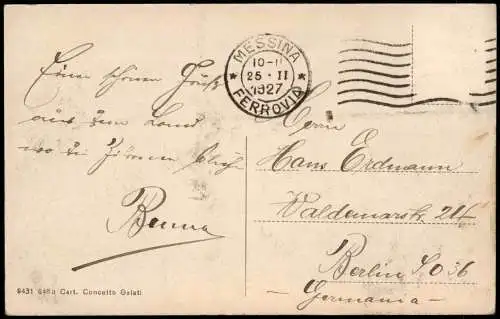 MESSINA
10-11
25 · II
1927
FERROVIA
Einen schönen Gruß
aus dem Land
wo die Zitronen blühn
Benna
Herrn
Hans Erdmann
Waldemarstr. 24
Berlin S.O 36
Germania
Cart. Concetto Galati